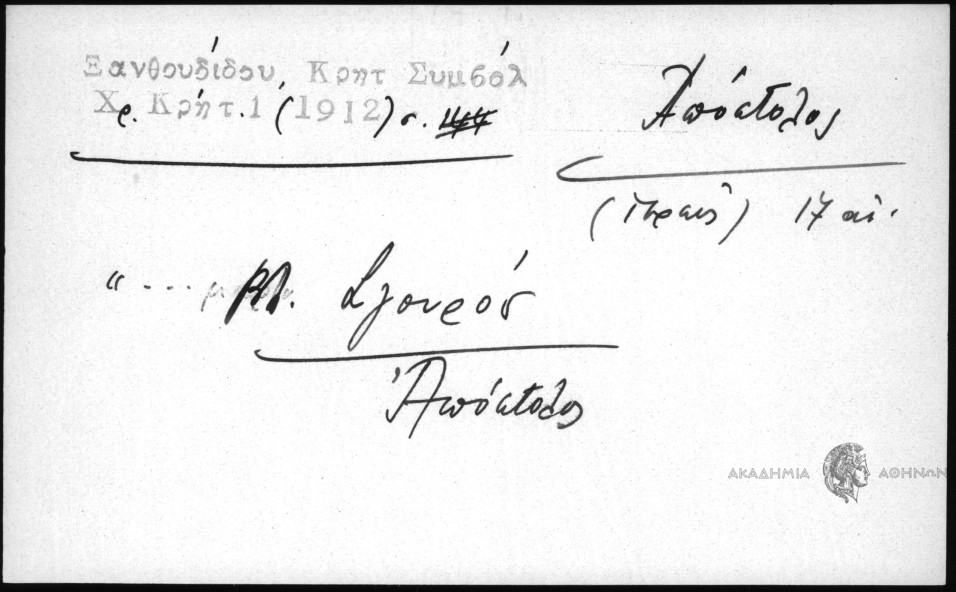 Ξανθουδίδου, Κρητ Συμβόλ
Χρ. Κρήτ. 1 (1912) σ.
Ἀπόστολος
17 αἰ.
"... βλ. Σγουρός
Ἀπόστολος
ΑΚΑΔΗΜΙΑ ΑΘΗΝΩΝ